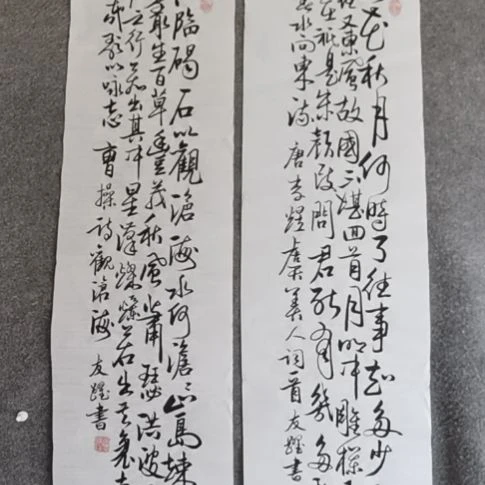 花秋月何時了往事知多少
又東風故國不堪回首月明中雕欄
在祇是朱顏改問君能有幾多
春水向東流 唐李煜虞美人詞一首 友躍書
臨碣石以觀滄海水何澹澹山島竦
叢生百草豐茂秋風蕭瑟洪波
之行若出其中星漢燦爛若出其裏
哉歌以咏志 曹操詩觀滄海 友躍書